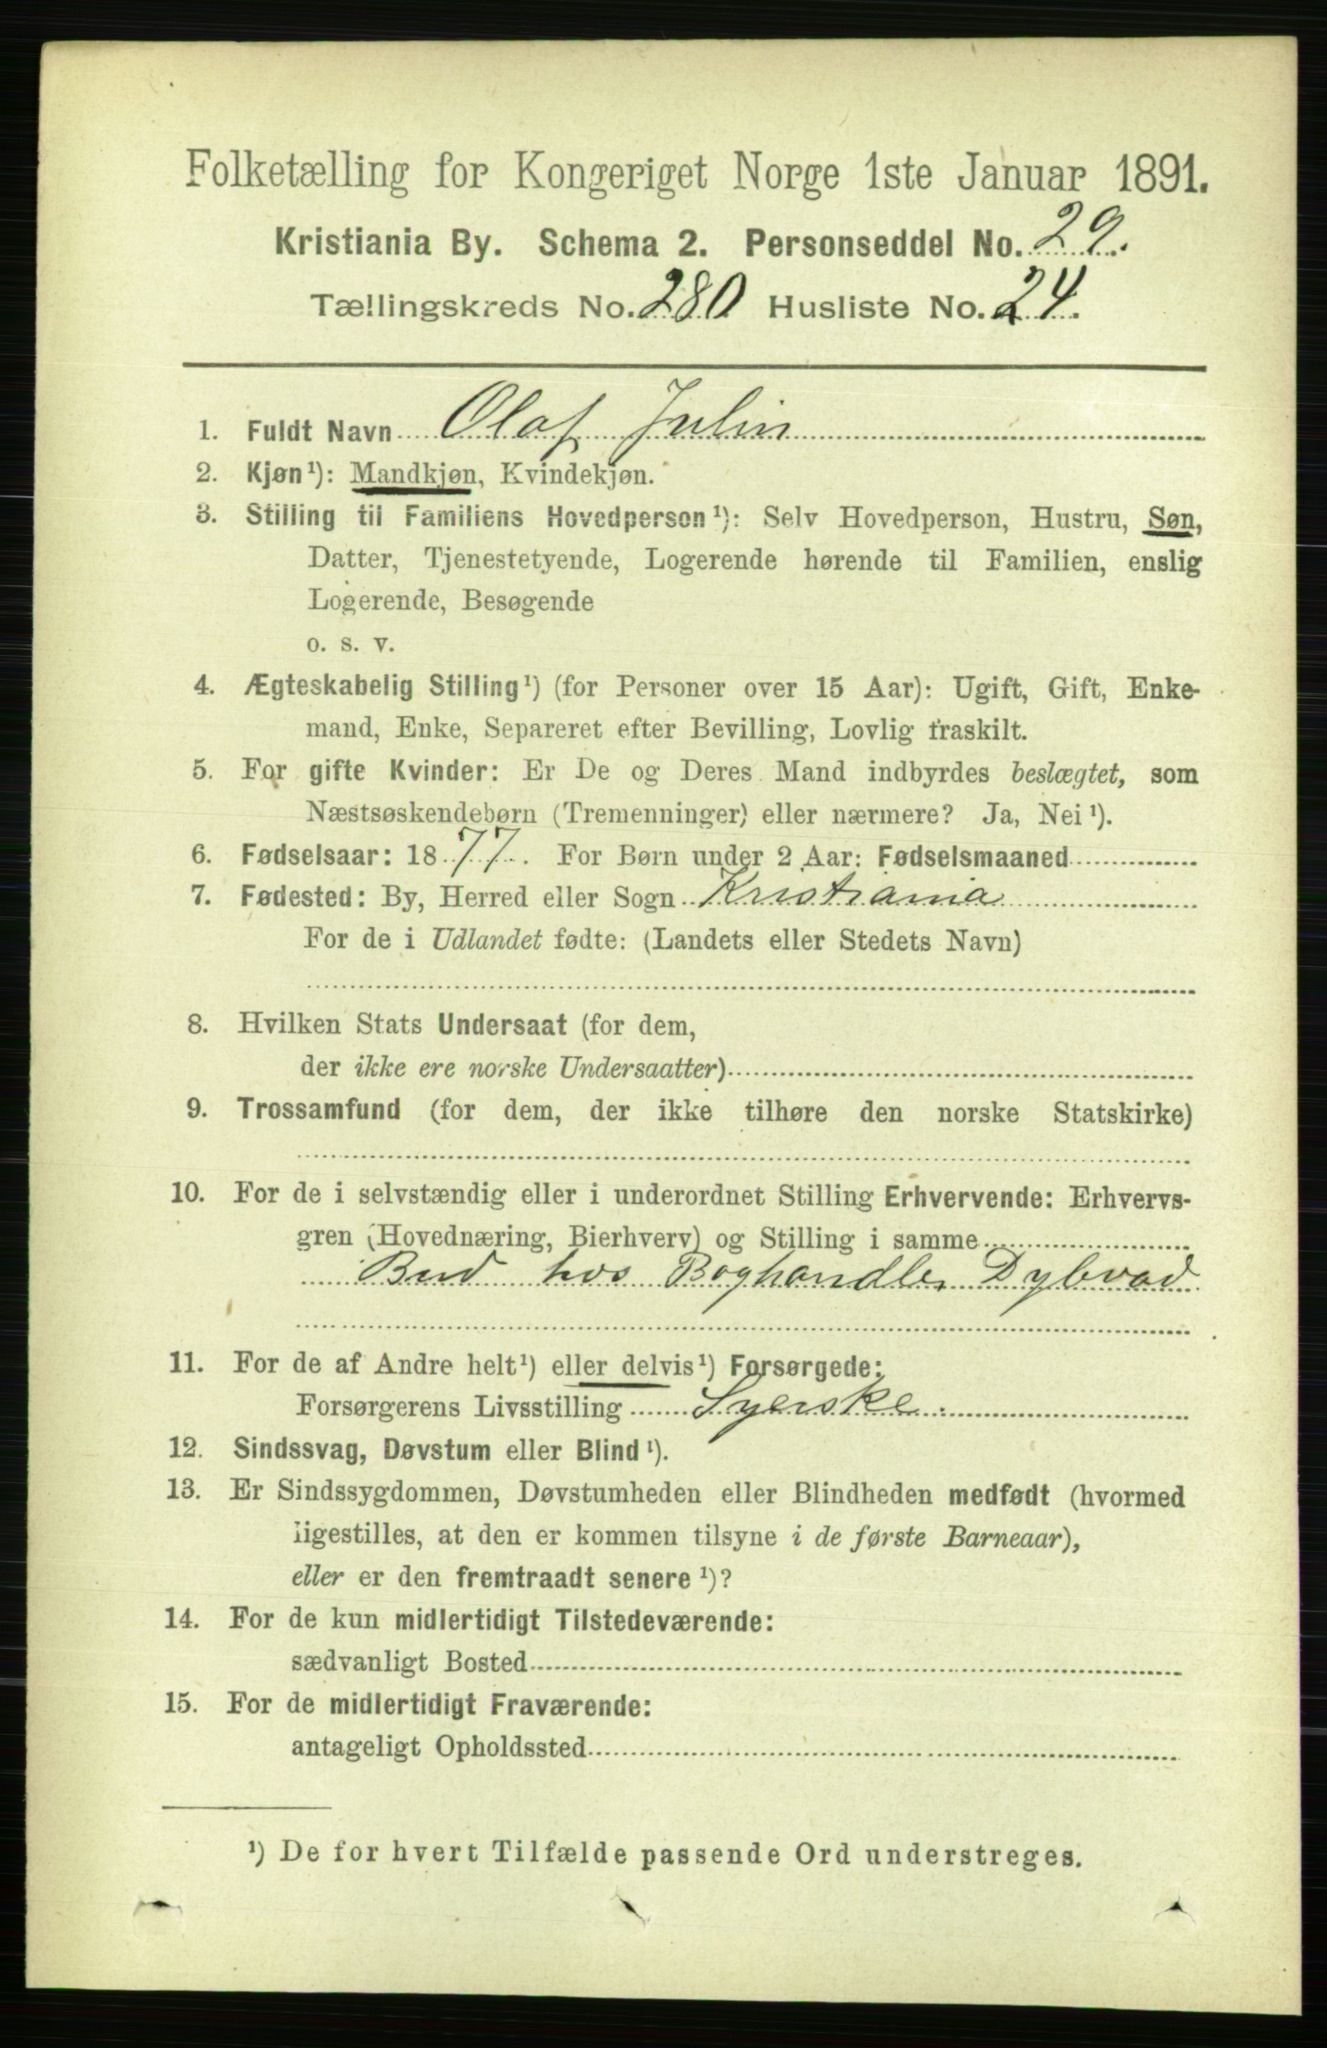 Folketælling for Kongeriget Norge 1ste Januar 1891.
Kristiania By. Schema 2. Personseddel No. 29.
Tællingskreds No. 280 Husliste No. 24.
1. Fuldt Navn Olaf Julin
2. Kjøn¹): Mandkjøn, Kvindekjøn.
3. Stilling til Familiens Hovedperson¹): Selv Hovedperson, Hustru, Søn,
Datter, Tjenestetyende, Logerende hørende til Familien, enslig
Logerende, Besøgende
o. s. v.
4. Ægteskabelig Stilling¹) (for Personer over 15 Aar): Ugift, Gift, Enke-
mand, Enke, Separeret efter Bevilling, Lovlig fraskilt.
5. For gifte Kvinder: Er De og Deres Mand indbyrdes beslægtet, som
Næstsøskendebørn (Tremenninger) eller nærmere? Ja, Nei¹).
6. Fødselsaar: 1877. For Børn under 2 Aar: Fødselsmaaned
7. Fødested: By, Herred eller Sogn Kristiania
For de i Udlandet fødte: (Landets eller Stedets Navn)
8. Hvilken Stats Undersaat (for dem,
der ikke ere norske Undersaatter)
9. Trossamfund (for dem, der ikke tilhøre den norske Statskirke)
10. For de i selvstændig eller i underordnet Stilling Erhvervende: Erhvervs-
gren (Hovednæring, Bierhverv) og Stilling i samme
Bud hos Boghandler Dybvad
11. For de af Andre helt¹) eller delvis¹) Forsørgede:
Forsørgerens Livsstilling Syerske.
12. Sindssvag, Døvstum eller Blind¹).
13. Er Sindssygdommen, Døvstumheden eller Blindheden medfødt (hvormed
ligestilles, at den er kommen tilsyne i de første Barneaar),
eller er den fremtraadt senere¹)?
14. For de kun midlertidigt Tilstedeværende:
sædvanligt Bosted
15. For de midlertidigt Fraværende:
antageligt Opholdssted
¹) De for hvert Tilfælde passende Ord understreges.